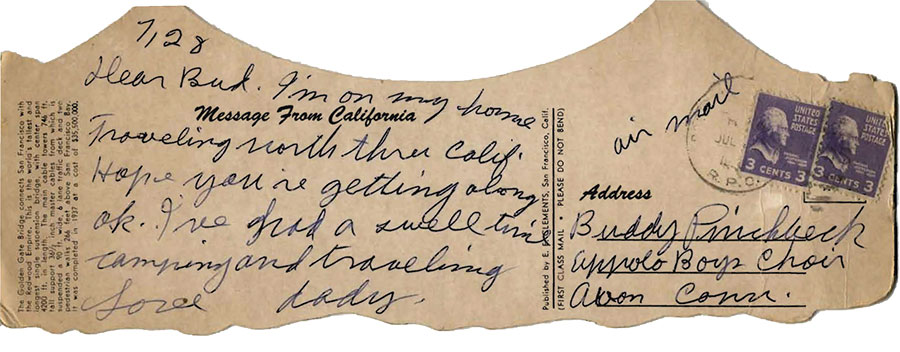 7/28
Dear Bud. I'm on my home
Message From California
Traveling north thru Calif.
Hope you're getting along
ok. I've had a swell time
camping and traveling
Love dady.
The Golden Gate Bridge connects San Francisco with
the Redwood Empire. This is the world's tallest and
longest single suspension bridge, with center span
4200 ft. in length. The main cable towers 746 ft.
tall support 36½ inch master cables from which is
suspended a 90 ft. wide, 6 lane traffic deck and two
pedestrian walks 266 feet above San Francisco Bay.
It was completed in 1937 at a cost of $35,500,000.
Published by E. F. CLEMENTS, San Francisco, Calif.
(FIRST CLASS MAIL • PLEASE DO NOT BEND)
air mail
JUL
R.P.O.
UNITED
STATES
POSTAGE
3 CENTS 3
UNITED
STATES
POSTAGE
3 CENTS 3
Address
Buddy Pinchbeck
Appolo Boys Choir
Avon Conn.